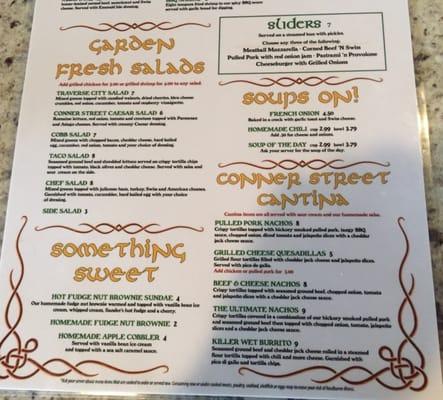 Served with
Eight tempura fried shrimp in our spicy BBQ sauce
served with garlic bread for dipping.
Garden
Fresh Salads
Add grilled chicken for 3.00 or grilled shrimp for 5.00 to any salad.
TRAVERSE CITY SALAD 7
Mixed greens topped with candied walnuts, dried cherries, bleu cheese
crumbles, red onion, cucumber, tomato and raspberry vinaigrette.
CONNER STREET CAESAR SALAD 6
Romaine lettuce, red onion, tomato and croutons topped with Parmesan
and Asiago cheese. Served with creamy Caesar dressing.
COBB SALAD 7
Mixed greens topped with chopped bacon, cheddar cheese, hard boiled
egg, cucumber, red onion, tomato, and your choice of dressing.
TACO SALAD 8
Seasoned ground beef and shredded lettuce served on crispy tortilla chips
topped with tomato, black olives and cheddar cheese. Served with salsa and
sour cream on the side.
CHEF SALAD 8
Mixed greens topped with julienne ham, turkey, Swiss and American cheeses.
Garnished with tomato, cucumber, hard boiled egg with your choice
of dressing.
SIDE SALAD 3
Something
Sweet
HOT FUDGE NUT BROWNIE SUNDAE 4
Our homemade fudge nut brownie warmed and topped with vanilla bean ice
cream, whipped cream, Sander's hot fudge and a cherry.
HOMEMADE FUDGE NUT BROWNIE 2
HOMEMADE APPLE COBBLER 4
Served with vanilla bean ice cream
and topped with a sea salt caramel sauce.
Sliders 7
Served on a steamed bun with pickles.
Choose any three of the following:
Meatball Mozzarella · Corned Beef 'N Swiss
Pulled Pork with red onion jam · Pastrami 'n Provolone
Cheeseburger with Grilled Onions
Soups On!
FRENCH ONION 4.50
Baked in a crock with garlic toast and Swiss cheese.
HOMEMADE CHILI cup 2.99 bowl 3.79
Add .50 for cheese and onions.
SOUP OF THE DAY cup 2.99 bowl 3.79
Ask your server for the soup of the day.
Conner Street
Cantina
Cantina items are all served with sour cream and our homemade salsa.
PULLED PORK NACHOS 8
Crispy tortillas topped with hickory smoked pulled pork, tangy BBQ
sauce, chopped onion, diced tomato and jalapeño slices with a cheddar
jack cheese sauce.
GRILLED CHEESE QUESADILLAS 5
Grilled flour tortillas filled with cheddar jack cheese and jalapeño slices.
Served with pico de gallo.
Add chicken or pulled pork for 3.00
BEEF & CHEESE NACHOS 8
Crispy tortillas topped with seasoned ground beef, chopped onion, tomato
and jalapeño slices with a cheddar jack cheese sauce.
THE ULTIMATE NACHOS 9
Crispy tortillas covered in a combination of our hickory smoked pulled pork
and seasoned ground beef then topped with chopped onion, tomato, jalapeño
slices and a cheddar jack cheese sauce.
KILLER WET BURRITO 9
Seasoned ground beef and cheddar jack cheese rolled in a steamed
flour tortilla topped with chili and more cheese. Garnished with
pico di gallo and tortilla chips.
*Ask your server about menu items that are cooked to order or served raw. Consuming raw or under cooked meats, poultry, seafood, shellfish or eggs may increase your risk of foodborne illness.